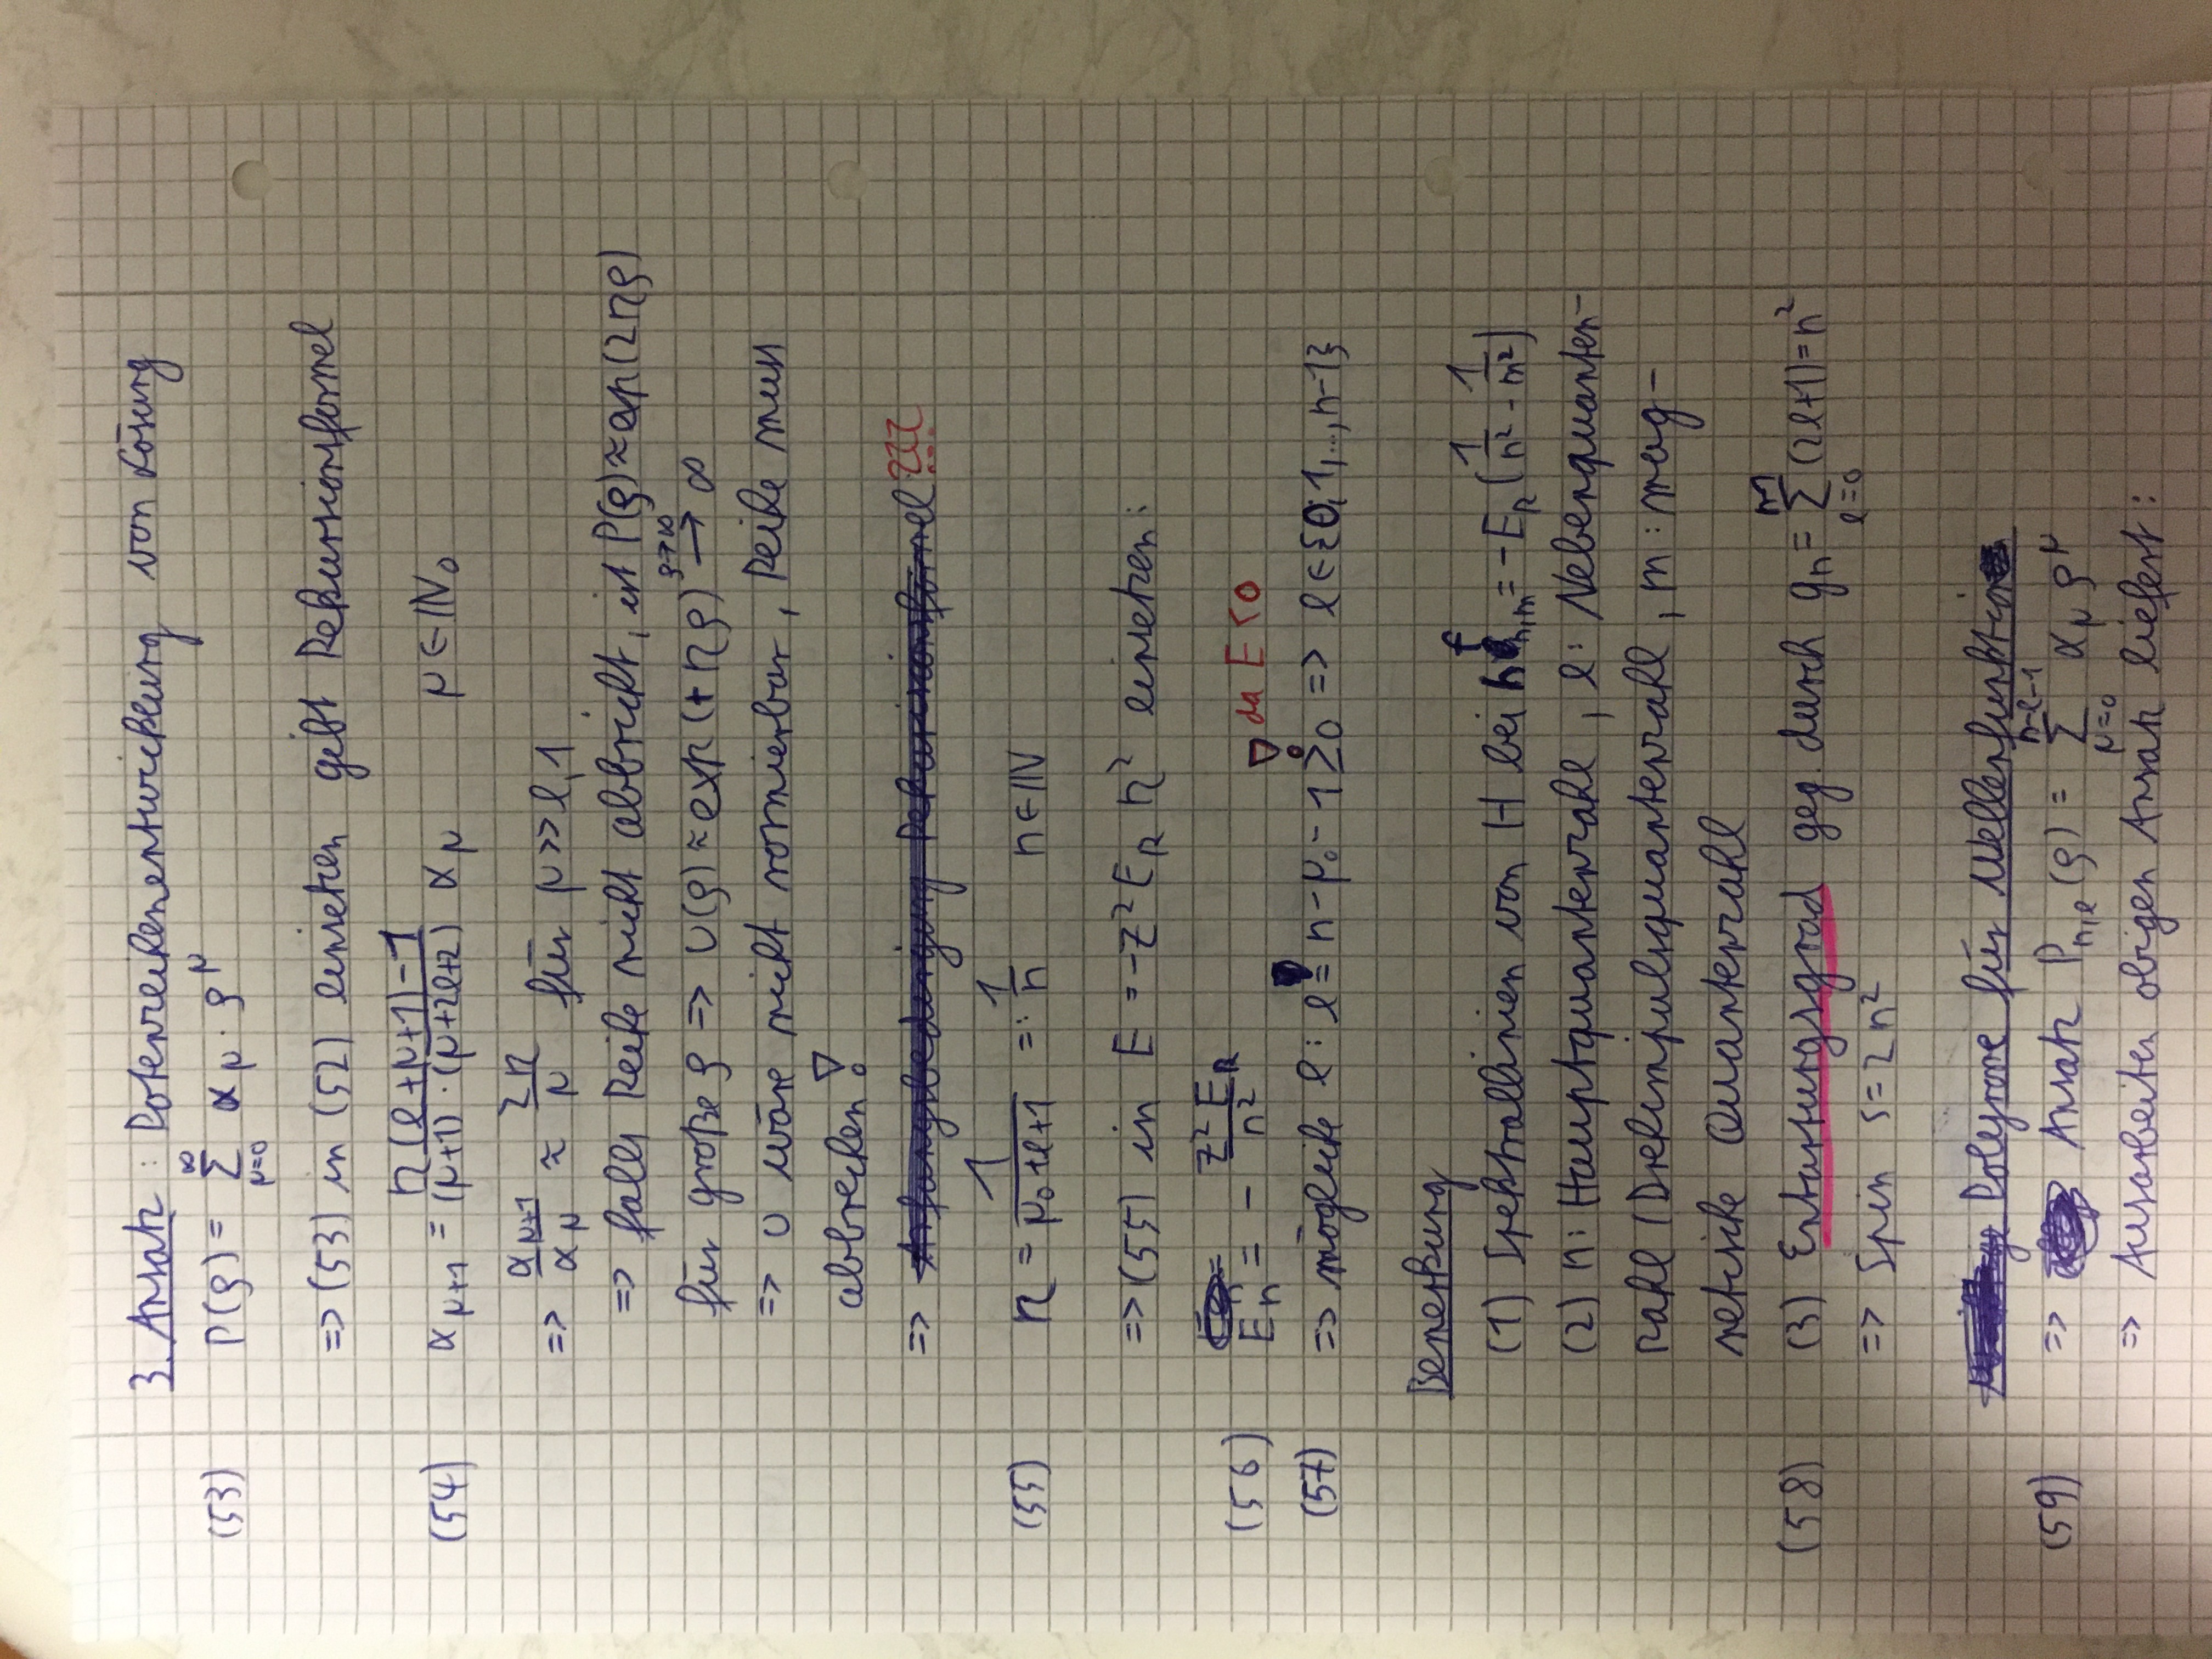 3. Ansatz: Potenzreihenentwicklung von Lösung
(53) P(ρ) = ∑_{μ=0}^{∞} α_μ · ρ^μ
=> (53) in (52) einsetzen gibt Rekursionsformel
(54) α_{μ+1} = \frac{η(l+μ+1)-1}{(μ+1)·(μ+2l+2)} α_μ μ ∈ ℕ₀
=> \frac{α_{μ+1}}{α_μ} ≈ \frac{2η}{μ} für μ >> l, 1
=> falls Reihe nicht abbricht, ist P(ρ) ≈ exp(2ηρ)
für große ρ => u(ρ) ≈ exp(+ηρ) \xrightarrow{ρ→∞} ∞
=> u wäre nicht normierbar, Reihe muss
abbrechen!
=> Anfangsbedingung Rekursionsformel ???
(55) η = \frac{1}{μ₀+l+1} =: \frac{1}{n} n ∈ ℕ
=> (55) in E = -Z² E_R η² einsetzen:
(56) E_n = - \frac{Z² E_R}{n²}
da E < 0
(57) => mögliche l: l = n-μ₀-1 ≥ 0 => l ∈ {0;1,...,n-1}
Bemerkung
(1) Spektrallinien von H bei hf_{n,m} = -E_R (\frac{1}{n²} - \frac{1}{m²})
(2) n: Hauptquantenzahl, l: Nebenquanten-
zahl (Drehimpulsquantenzahl, m: mag-
netische Quantenzahl
(58) (3) Entartungsgrad geg. durch g_n = ∑_{l=0}^{n-1} (2l+1) = n²
=> Spin s = 2n²
Polynome für Wellenfunktion
(59) => Ansatz P_{n,l}(ρ) = ∑_{μ=0}^{n-l-1} α_μ ρ^μ
=> Ausarbeiten obigen Ansatz liefert: